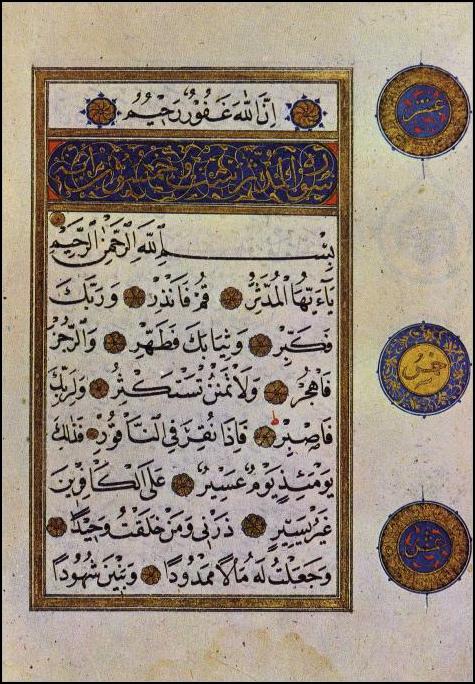 اِنَّ اللّٰهَ غَفُورٌ رَحِيمٌ
سورة المدثر
بِسْمِ اللّٰهِ الرَّحْمٰنِ الرَّحِيمِ
يَآءَيُّهَا الْمُدَّثِّرُ قُمْ فَاَنْذِرْ وَرَبَّكَ
فَكَبِّرْ وَثِيَابَكَ فَطَهِّرْ وَالرُّجْزَ
فَاهْجُرْ وَلَا تَمْنُنْ تَسْتَكْثِرُ وَلِرَبِّكَ
فَاصْبِرْ فَاِذَا نُقِرَ فِي النَّاقُورِ فَذٰلِكَ
يَوْمَئِذٍ يَوْمٌ عَسِيرٌ عَلَى الْكَافِرِينَ
غَيْرُ يَسِيرٍ ذَرْنِي وَمَنْ خَلَقْتُ وَحِيدًا
وَجَعَلْتُ لَهُ مَالًا مَمْدُودًا وَبَنِينَ شُهُودًا
عشر
خمس
عشر